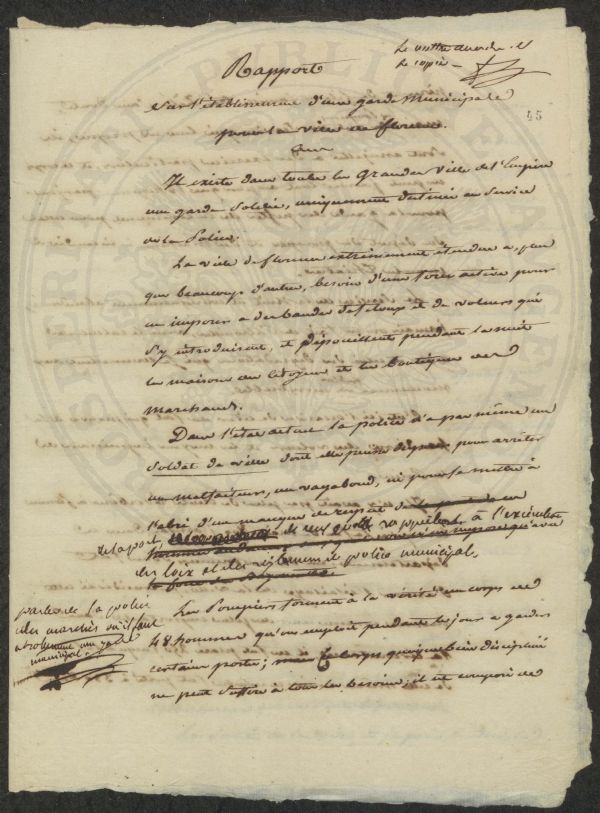 Le mettre au n.
Le copier
45
Rapport
Sur l'établissement d'une garde Municipale
pour la ville de florence.
Il existe dans toutes les Grandes Villes de l'Empire
une garde Soldée, uniquement destinée au Service
de la Police.
La ville de florence extrêmement étendue a, plus
que beaucoup d'autres, besoin d'une force active pour
en imposer à des bandes de filoux et de voleurs qui
S'y introduisent, et dépouillent pendant la nuit
les maisons des Citoyens et les boutiques des
Marchands.
Dans l'état actuel la police n'a pas même un
Soldat de ville dont elle puisse disposer pour arrêter
un malfaiteur, un vagabond, ni pour la mettre à
l'abri d'un manque de respect
de la part de ceux qu'elle rappelle à l'exécution
des loix et des réglemens de police municipale,
Les Pompiers forment à la vérité un corps de
48 hommes qu'on emploit pendant le jour à garder
certains postes; mais ce Corps quoique bien discipliné
ne peut Suffire à tous les besoins; il est composé de
parler de la police
des marchés où il faut
absolument une garde
municipale